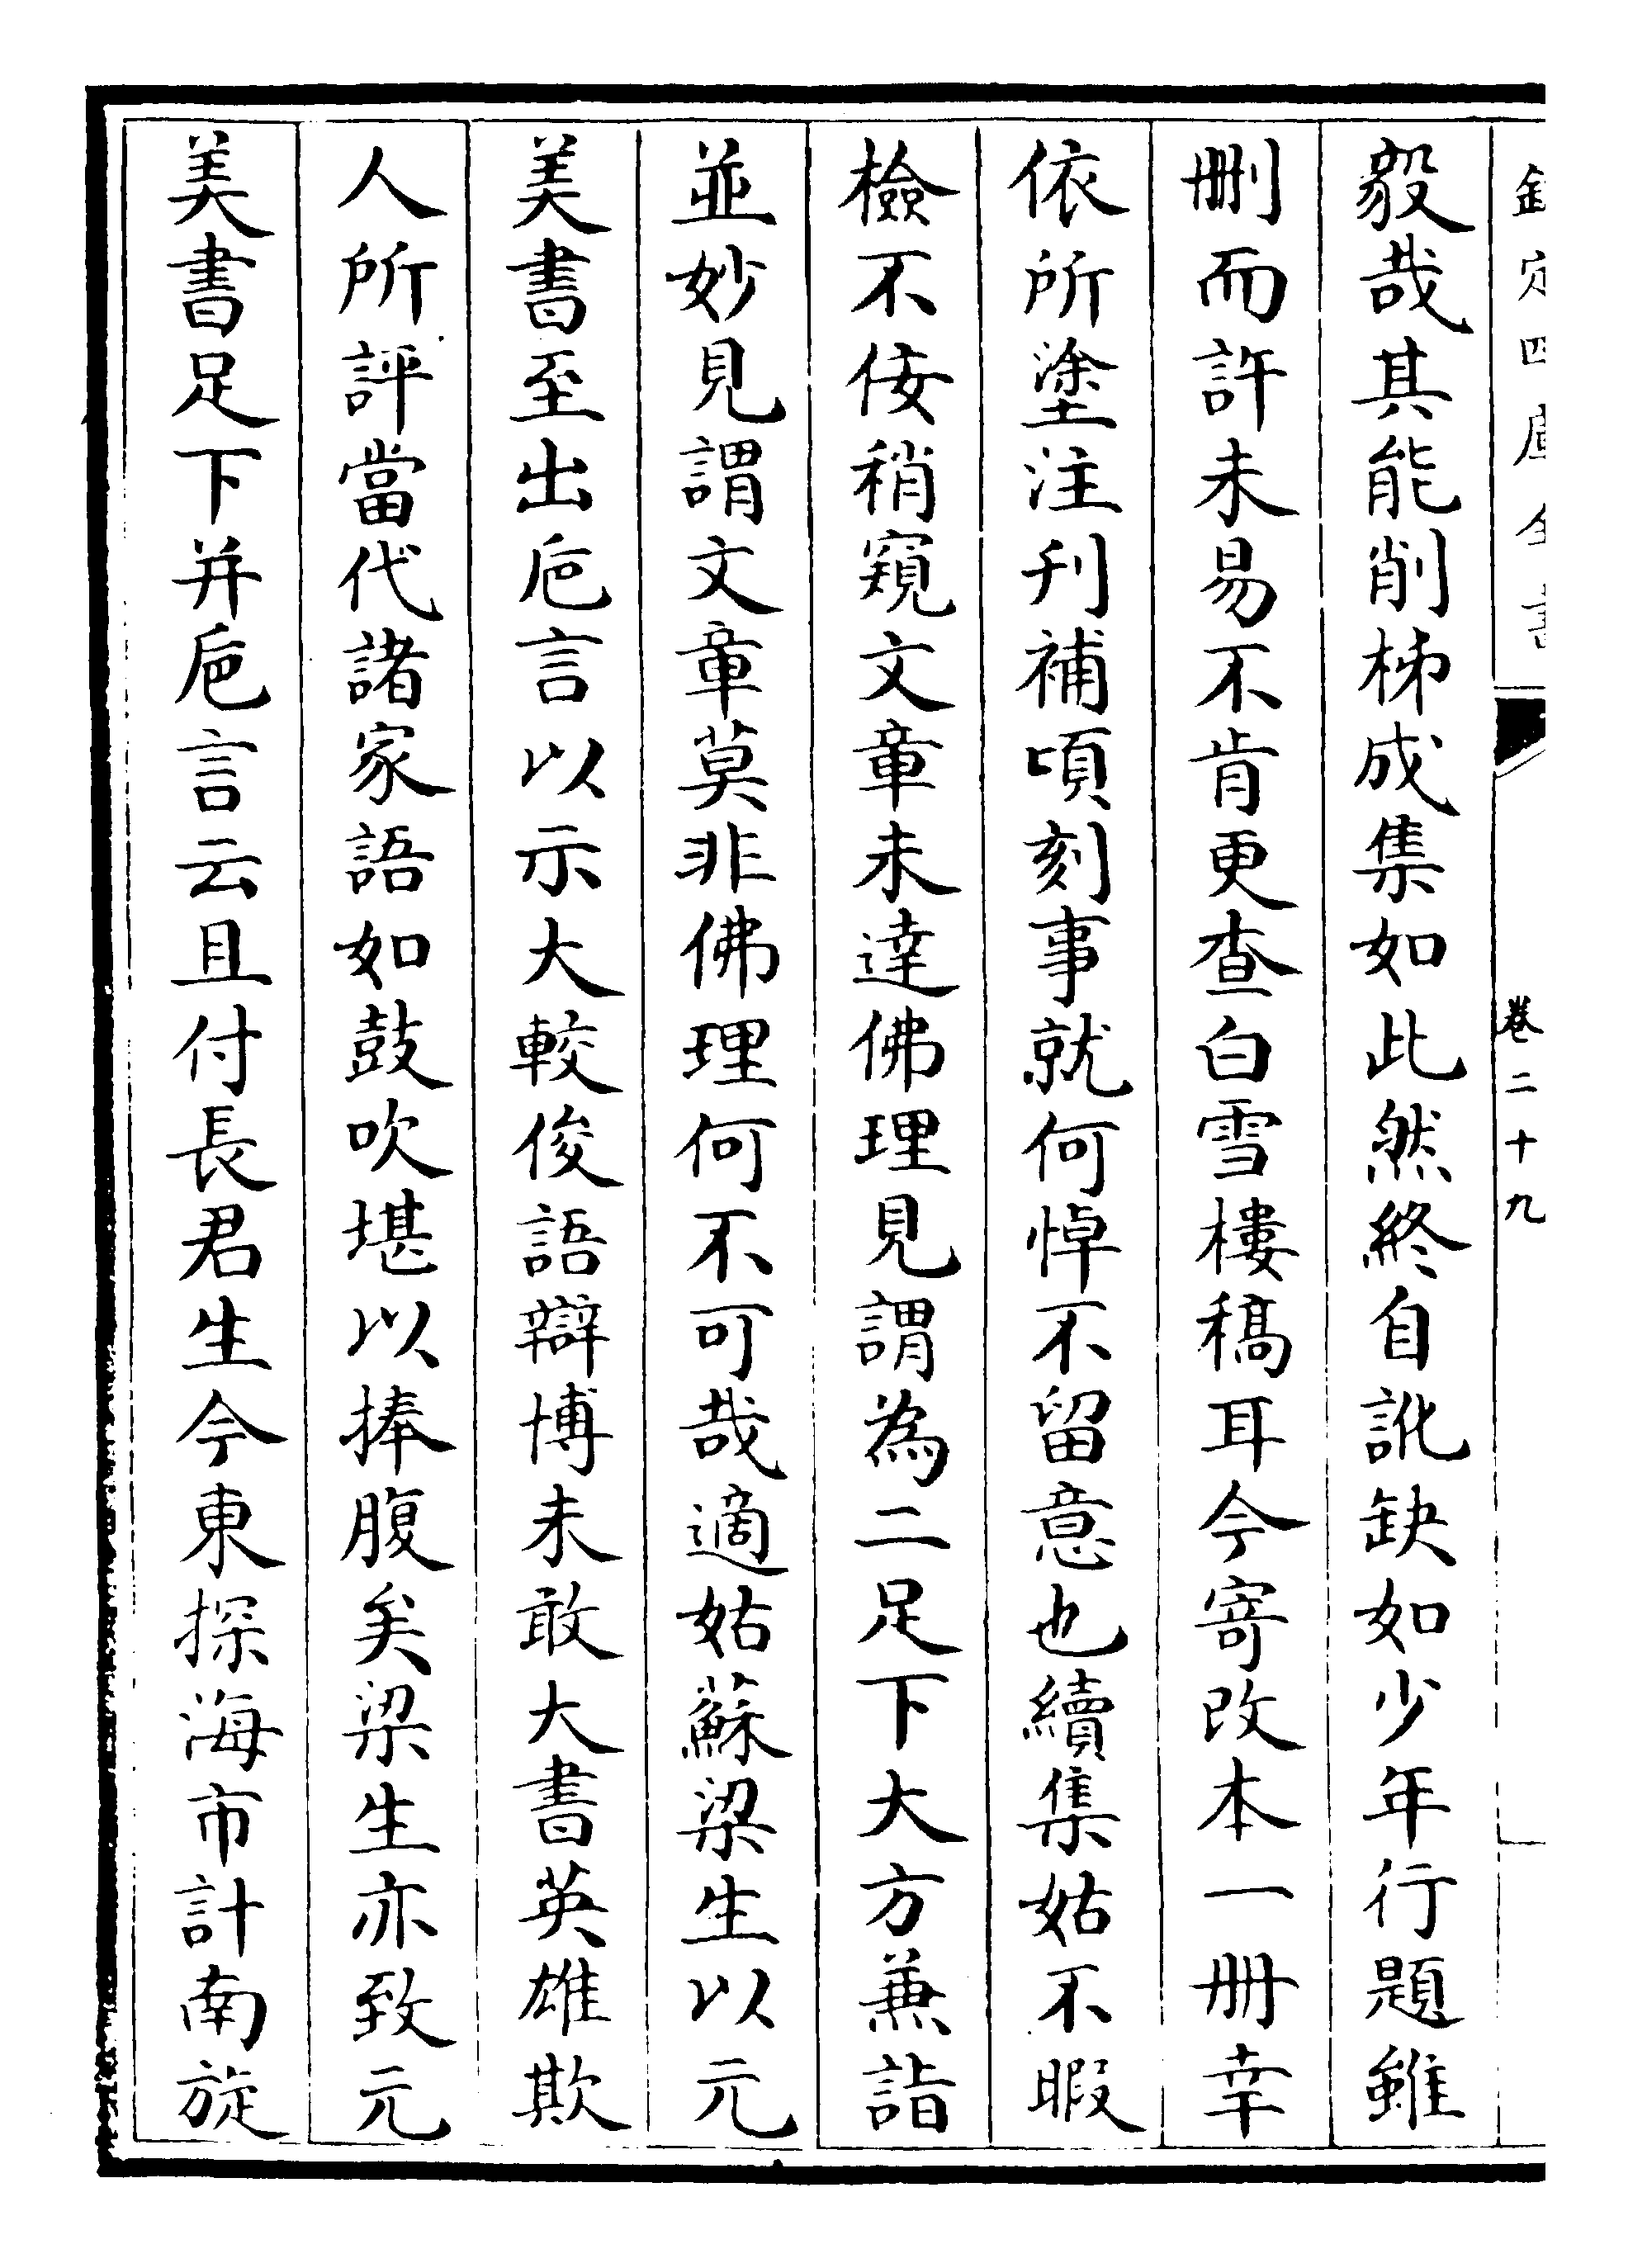 欽定四庫全書 卷二十九
毅哉其能削梯成集如此然終自訛缺如少年行題雖
刪而許未易不肯更查白雪樓稿耳今寄改本一冊幸
依所塗注刋補頃刻事就何悼不留意也續集姑不暇
檢不佞稍窺文章未達佛理見謂為二足下大方兼詣
並妙見謂文章莫非佛理何不可哉適姑蘇梁生以元
美書至出巵言以示大較俊語辯博未敢大書英雄欺
人所評當代諸家語如鼓吹堪以捧腹矣梁生亦致元
美書足下并巵言云且付長君生今東探海市計南旋